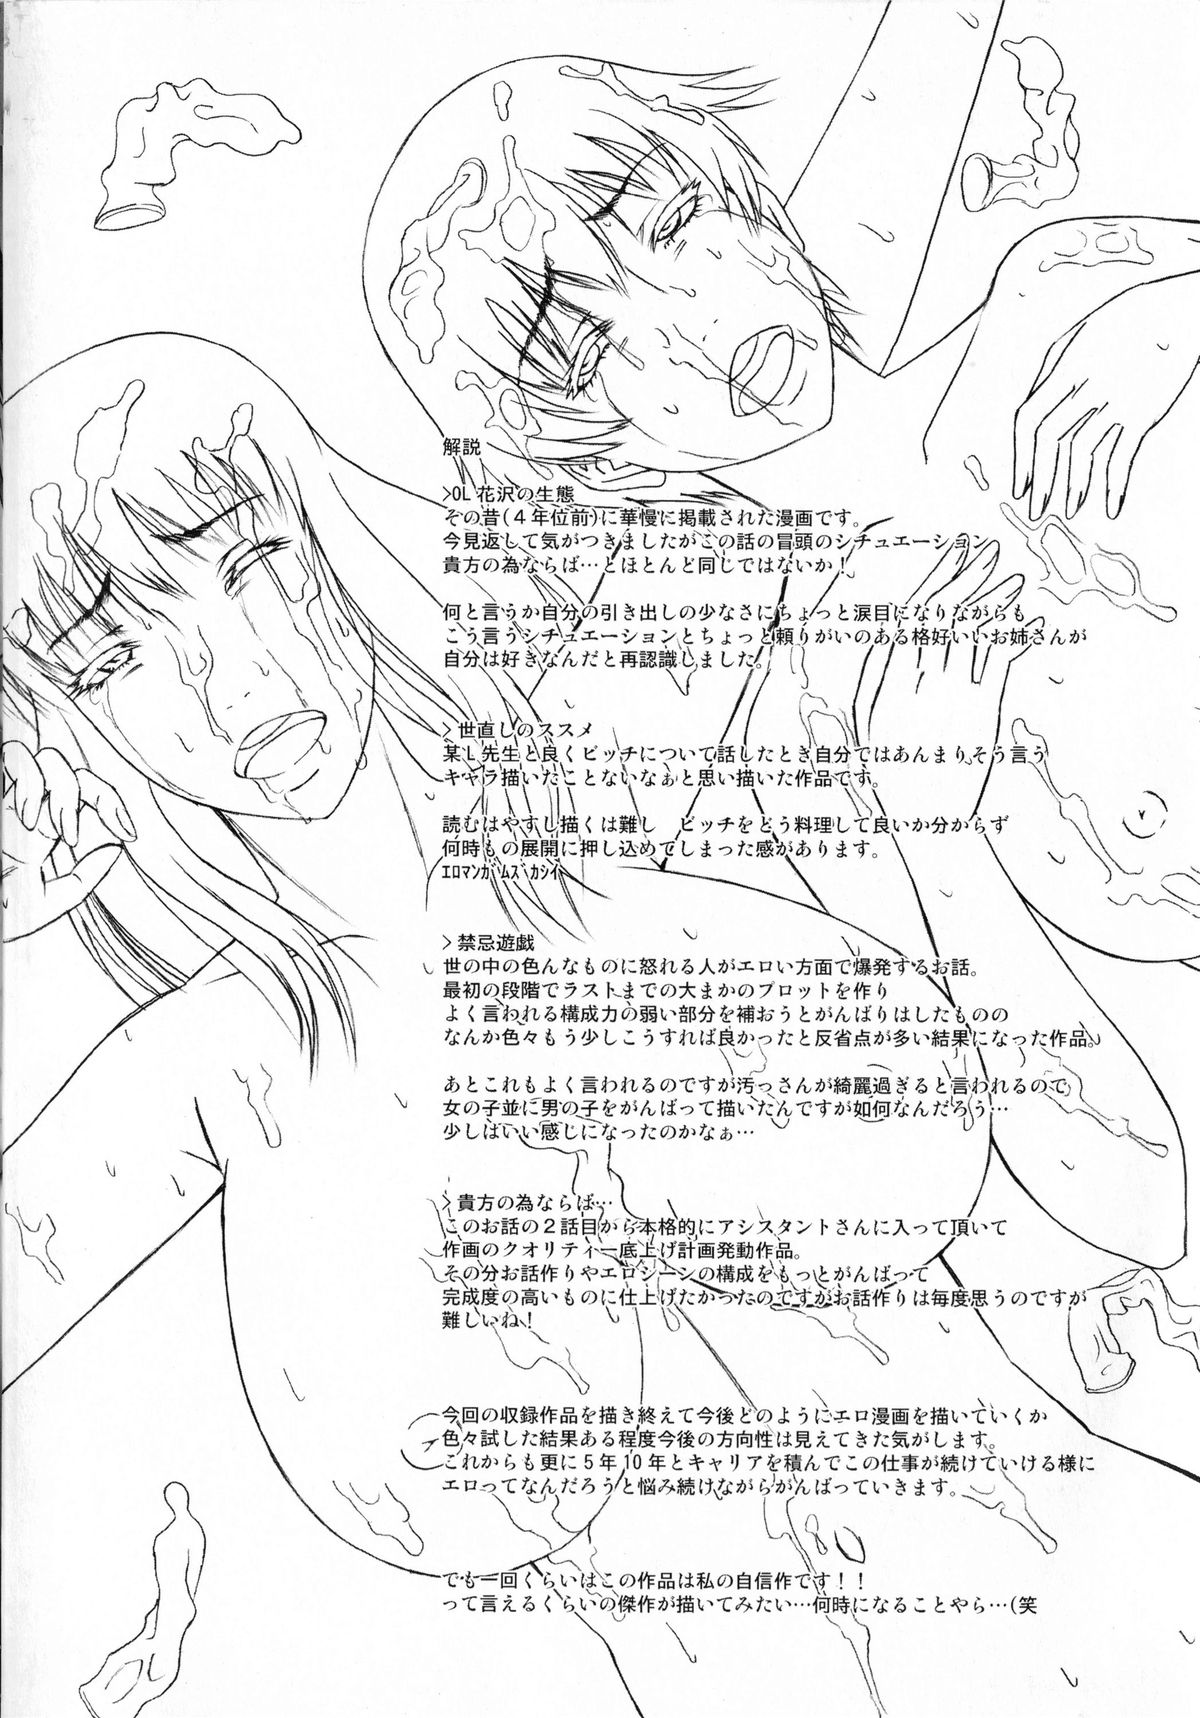 解説
>OL花沢の生態
その昔(4年位前)に華慢に掲載された漫画です。
今見返して気がつきましたがこの話の冒頭のシチュエーション
貴方の為ならば…とほとんど同じではないか!
何と言うか自分の引き出しの少なさにちょっと涙目になりながらも
こう言うシチュエーションとちょっと頼りがいのある格好いいお姉さんが
自分は好きなんだと再認識しました。
>世直しのススメ
某L先生と良くビッチについて話したとき自分ではあんまりそう言う
キャラ描いたことないなぁと思い描いた作品です。
読むはやすし描くは難し　ビッチをどう料理して良いか分からず
何時もの展開に押し込めてしまった感があります。
ｴﾛﾏﾝｶﾞﾑｽﾞｶｼｲ
>禁忌遊戯
世の中の色んなものに怒れる人がエロい方面で爆発するお話。
最初の段階でラストまでの大まかのプロットを作り
よく言われる構成力の弱い部分を補おうとがんばりはしたものの
なんか色々もう少しこうすれば良かったと反省点が多い結果になった作品。
あとこれもよく言われるのですが汚っさんが綺麗過ぎると言われるので
女の子並に男の子をがんばって描いたんですが如何なんだろう…
少しはいい感じになったのかなぁ…
>貴方の為ならば…
このお話の2話目から本格的にアシスタントさんに入って頂いて
作画のクオリティー底上げ計画発動作品。
その分お話作りやエロシーンの構成をもっとがんばって
完成度の高いものに仕上げたかったのですがお話作りは毎度思うのですが
難しいね!
今回の収録作品を描き終えて今後どのようにエロ漫画を描いていくか
色々試した結果ある程度今後の方向性は見えてきた気がします。
これからも更に5年10年とキャリアを積んでこの仕事が続けていける様に
エロってなんだろうと悩み続けながらがんばっていきます。
でも一回くらいはこの作品は私の自信作です!!
って言えるくらいの傑作が描いてみたい…何時になることやら…(笑